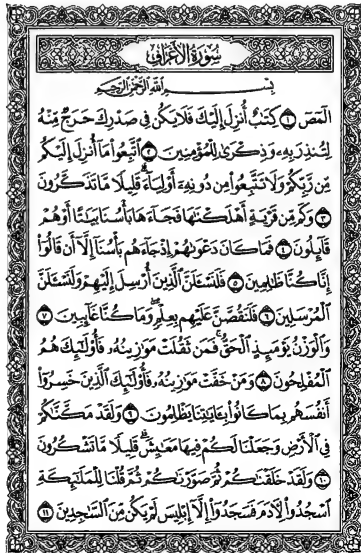 سُورَةُ الْأَعْرَافِ
بِسْمِ اللَّهِ الرَّحْمَٰنِ الرَّحِيمِ
الٓمٓصٓ ١ كِتَٰبٌ أُنزِلَ إِلَيْكَ فَلَا يَكُن فِى صَدْرِكَ حَرَجٌ مِّنْهُ
لِتُنذِرَ بِهِۦ وَذِكْرَىٰ لِلْمُؤْمِنِينَ ٢ ٱتَّبِعُوا۟ مَآ أُنزِلَ إِلَيْكُم
مِّن رَّبِّكُمْ وَلَا تَتَّبِعُوا۟ مِن دُونِهِۦٓ أَوْلِيَآءَۗ قَلِيلًا مَّا تَذَكَّرُونَ
٣ وَكَم مِّن قَرْيَةٍ أَهْلَكْنَٰهَا فَجَآءَهَا بَأْسُنَا بَيَٰتًا أَوْ هُمْ
قَآئِلُونَ ٤ فَمَا كَانَ دَعْوَىٰهُمْ إِذْ جَآءَهُم بَأْسُنَآ إِلَّآ أَن قَالُوٓا۟
إِنَّا كُنَّا ظَٰلِمِينَ ٥ فَلَنَسْـَٔلَنَّ ٱلَّذِينَ أُرْسِلَ إِلَيْهِمْ وَلَنَسْـَٔلَنَّ
ٱلْمُرْسَلِينَ ٦ فَلَنَقُصَّنَّ عَلَيْهِم بِعِلْمٍۖ وَمَا كُنَّا غَآئِبِينَ ٧
وَٱلْوَزْنُ يَوْمَئِذٍ ٱلْحَقُّۚ فَمَن ثَقُلَتْ مَوَٰزِينُهُۥ فَأُو۟لَٰٓئِكَ هُمُ
ٱلْمُفْلِحُونَ ٨ وَمَنْ خَفَّتْ مَوَٰزِينُهُۥ فَأُو۟لَٰٓئِكَ ٱلَّذِينَ خَسِرُوٓا۟
أَنفُسَهُم بِمَا كَانُوا۟ بِـَٔايَٰتِنَا يَظْلِمُونَ ٩ وَلَقَدْ مَكَّنَّٰكُمْ
فِى ٱلْأَرْضِ وَجَعَلْنَا لَكُمْ فِيهَا مَعَٰيِشَۗ قَلِيلًا مَّا تَشْكُرُونَ
١٠ وَلَقَدْ خَلَقْنَٰكُمْ ثُمَّ صَوَّرْنَٰكُمْ ثُمَّ قُلْنَا لِلْمَلَٰٓئِكَةِ
ٱسْجُدُوا۟ لِـَٔادَمَ فَسَجَدُوٓا۟ إِلَّآ إِبْلِيسَ لَمْ يَكُن مِّنَ ٱلسَّٰجِدِينَ ١١